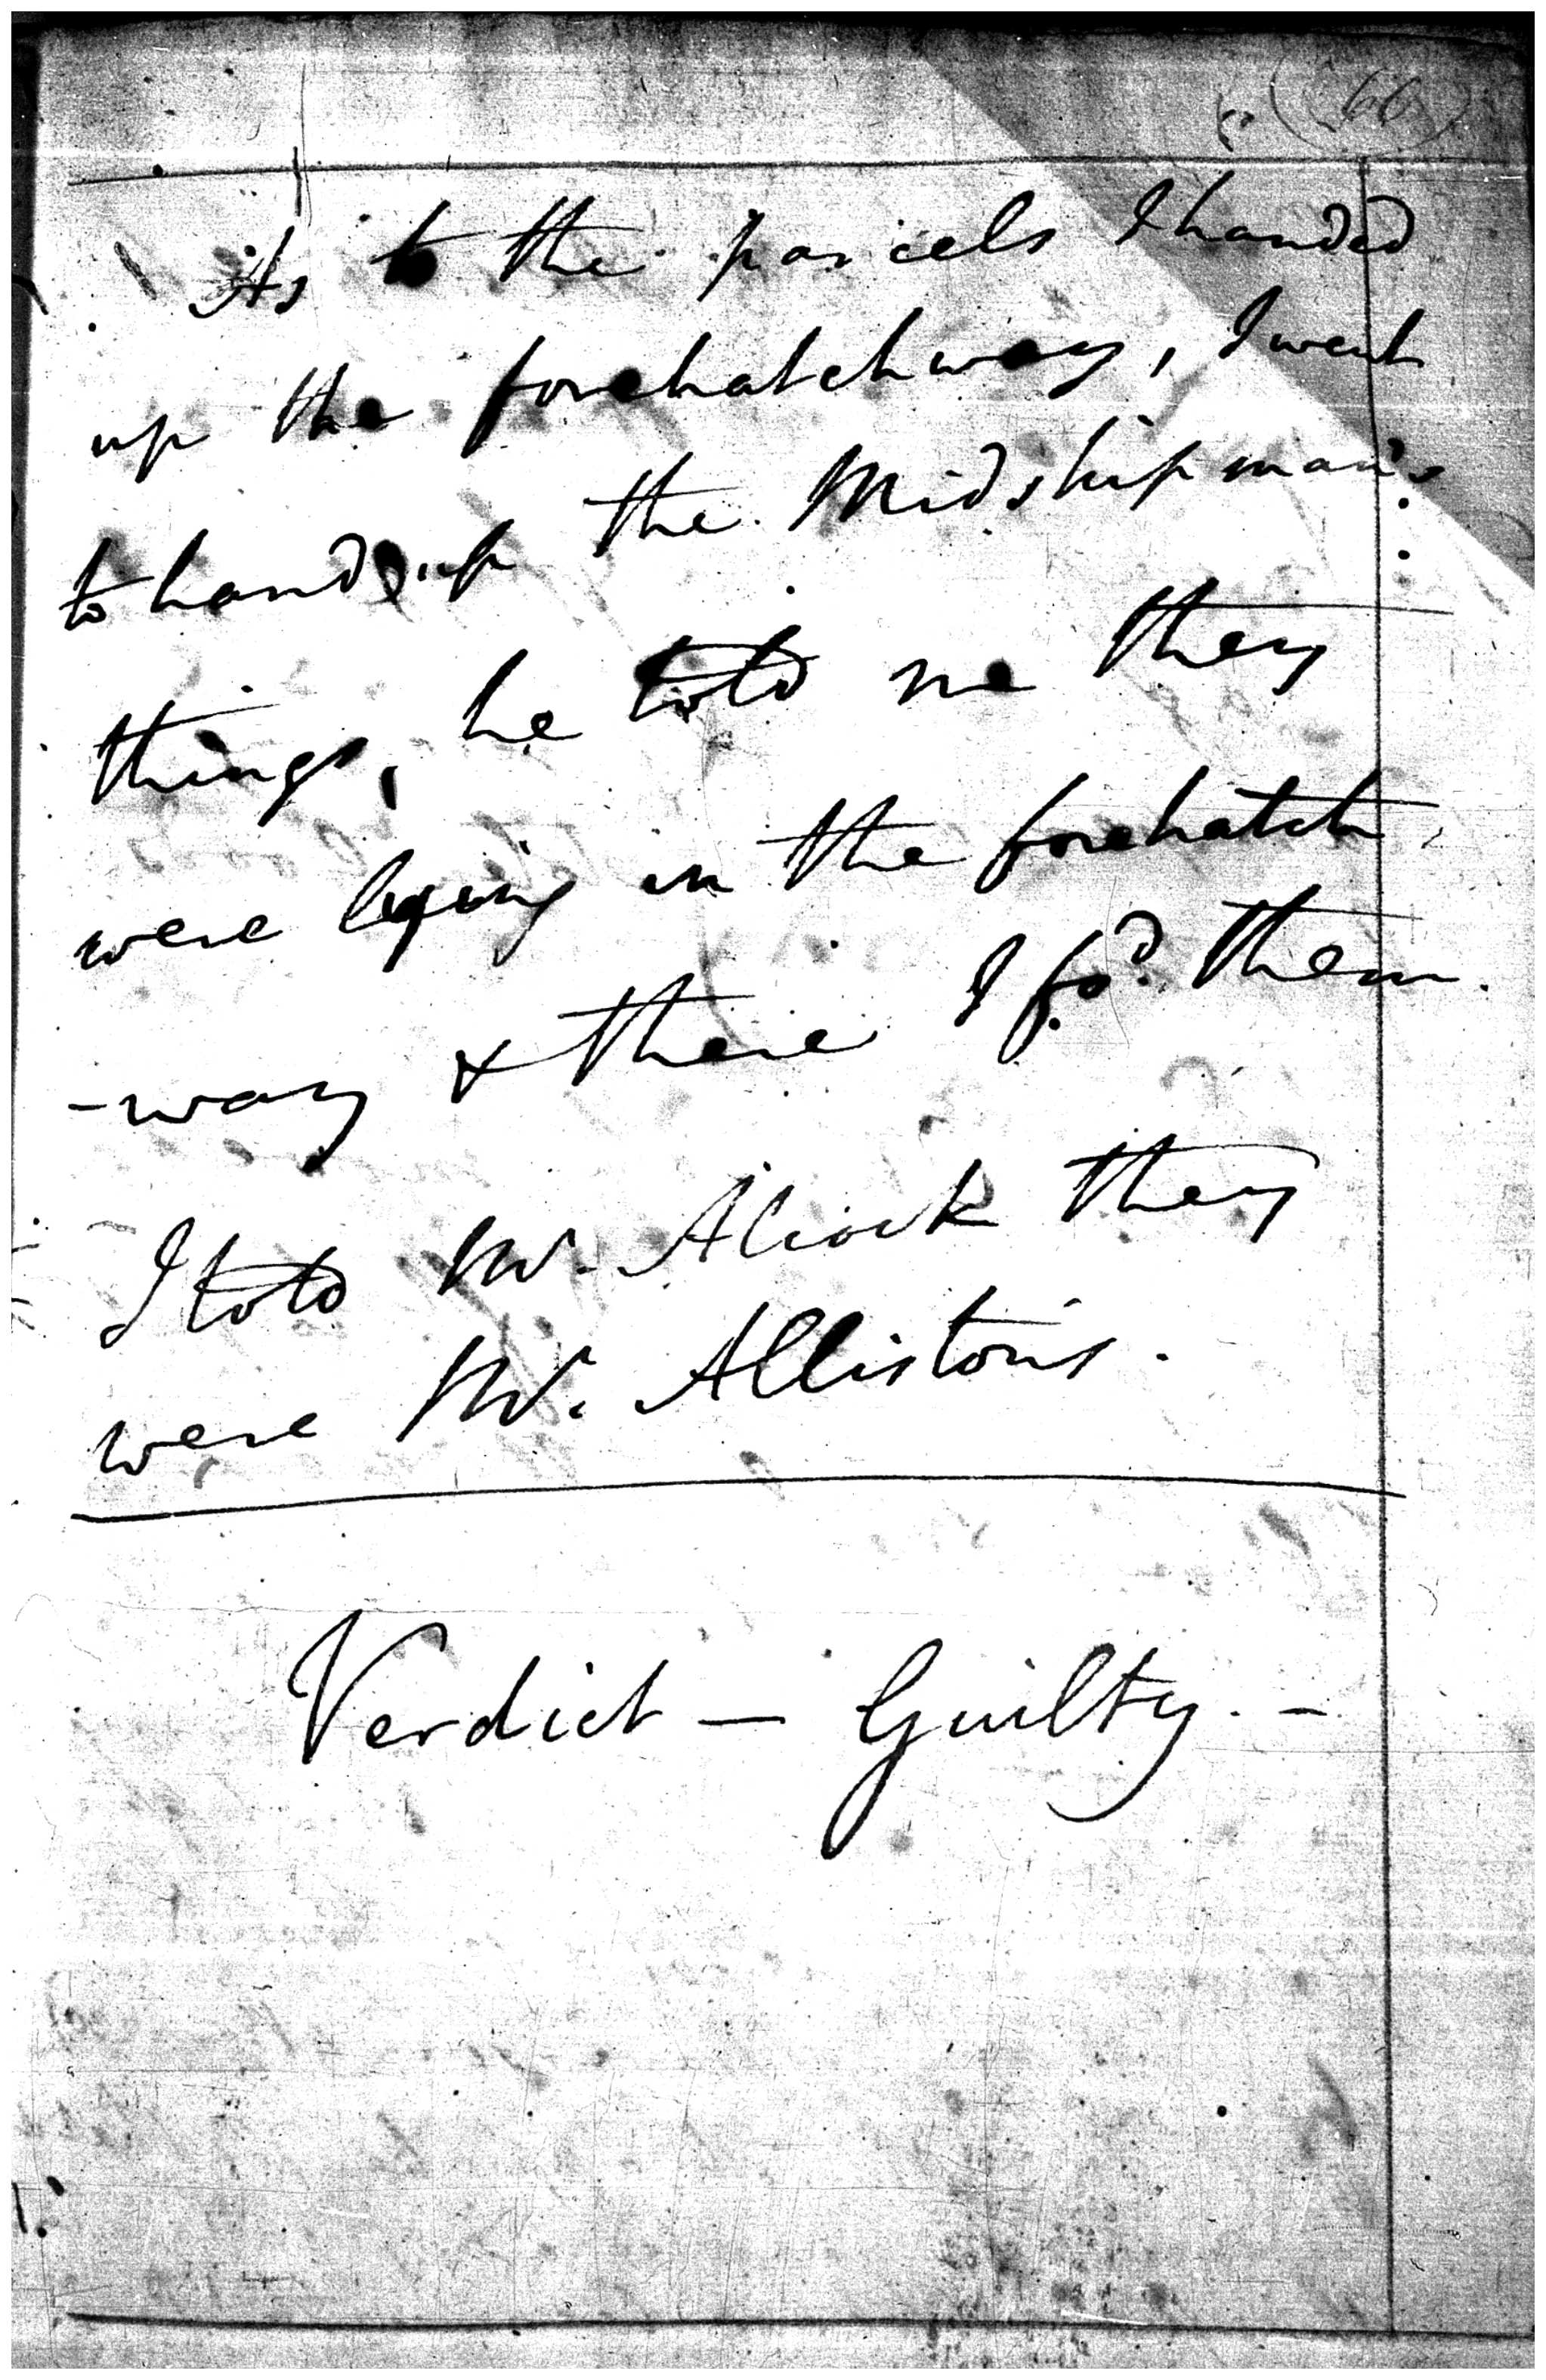 (66)
As to the parcels I handed
up the forehatchway, I went
to hand up the Midshipman's
things, he told me they
were lying in the forehatch
-way & there I fo.d them.
I told Mr. Alcock they
were Mr. Alliston's.
Verdict — Guilty. –